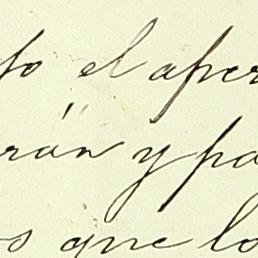 fo el aper
rán y pa
os que lo